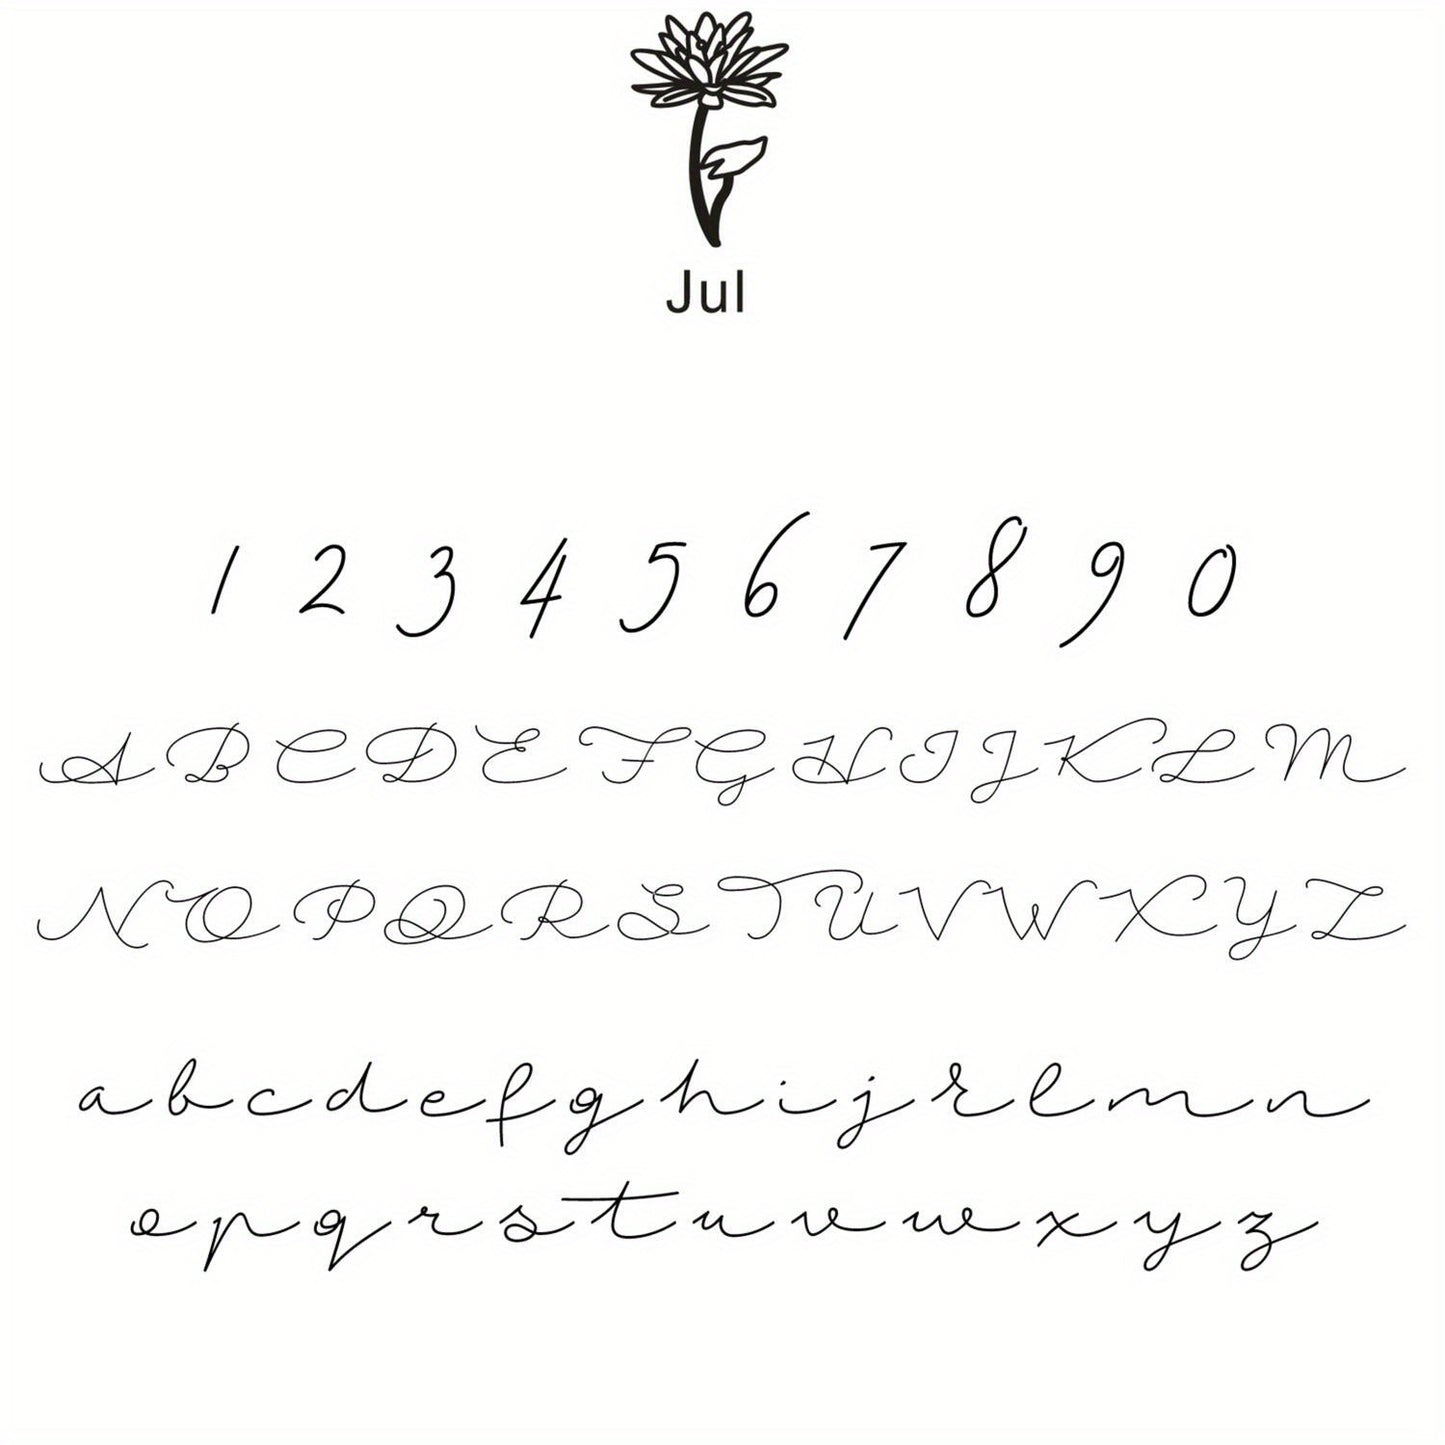 Jul
1 2 3 4 5 6 7 8 9 0
A B C D E F G H I J K L M
N O P Q R S T U V W X Y Z
a b c d e f g h i j k l m n
o p q r s t u v w x y z